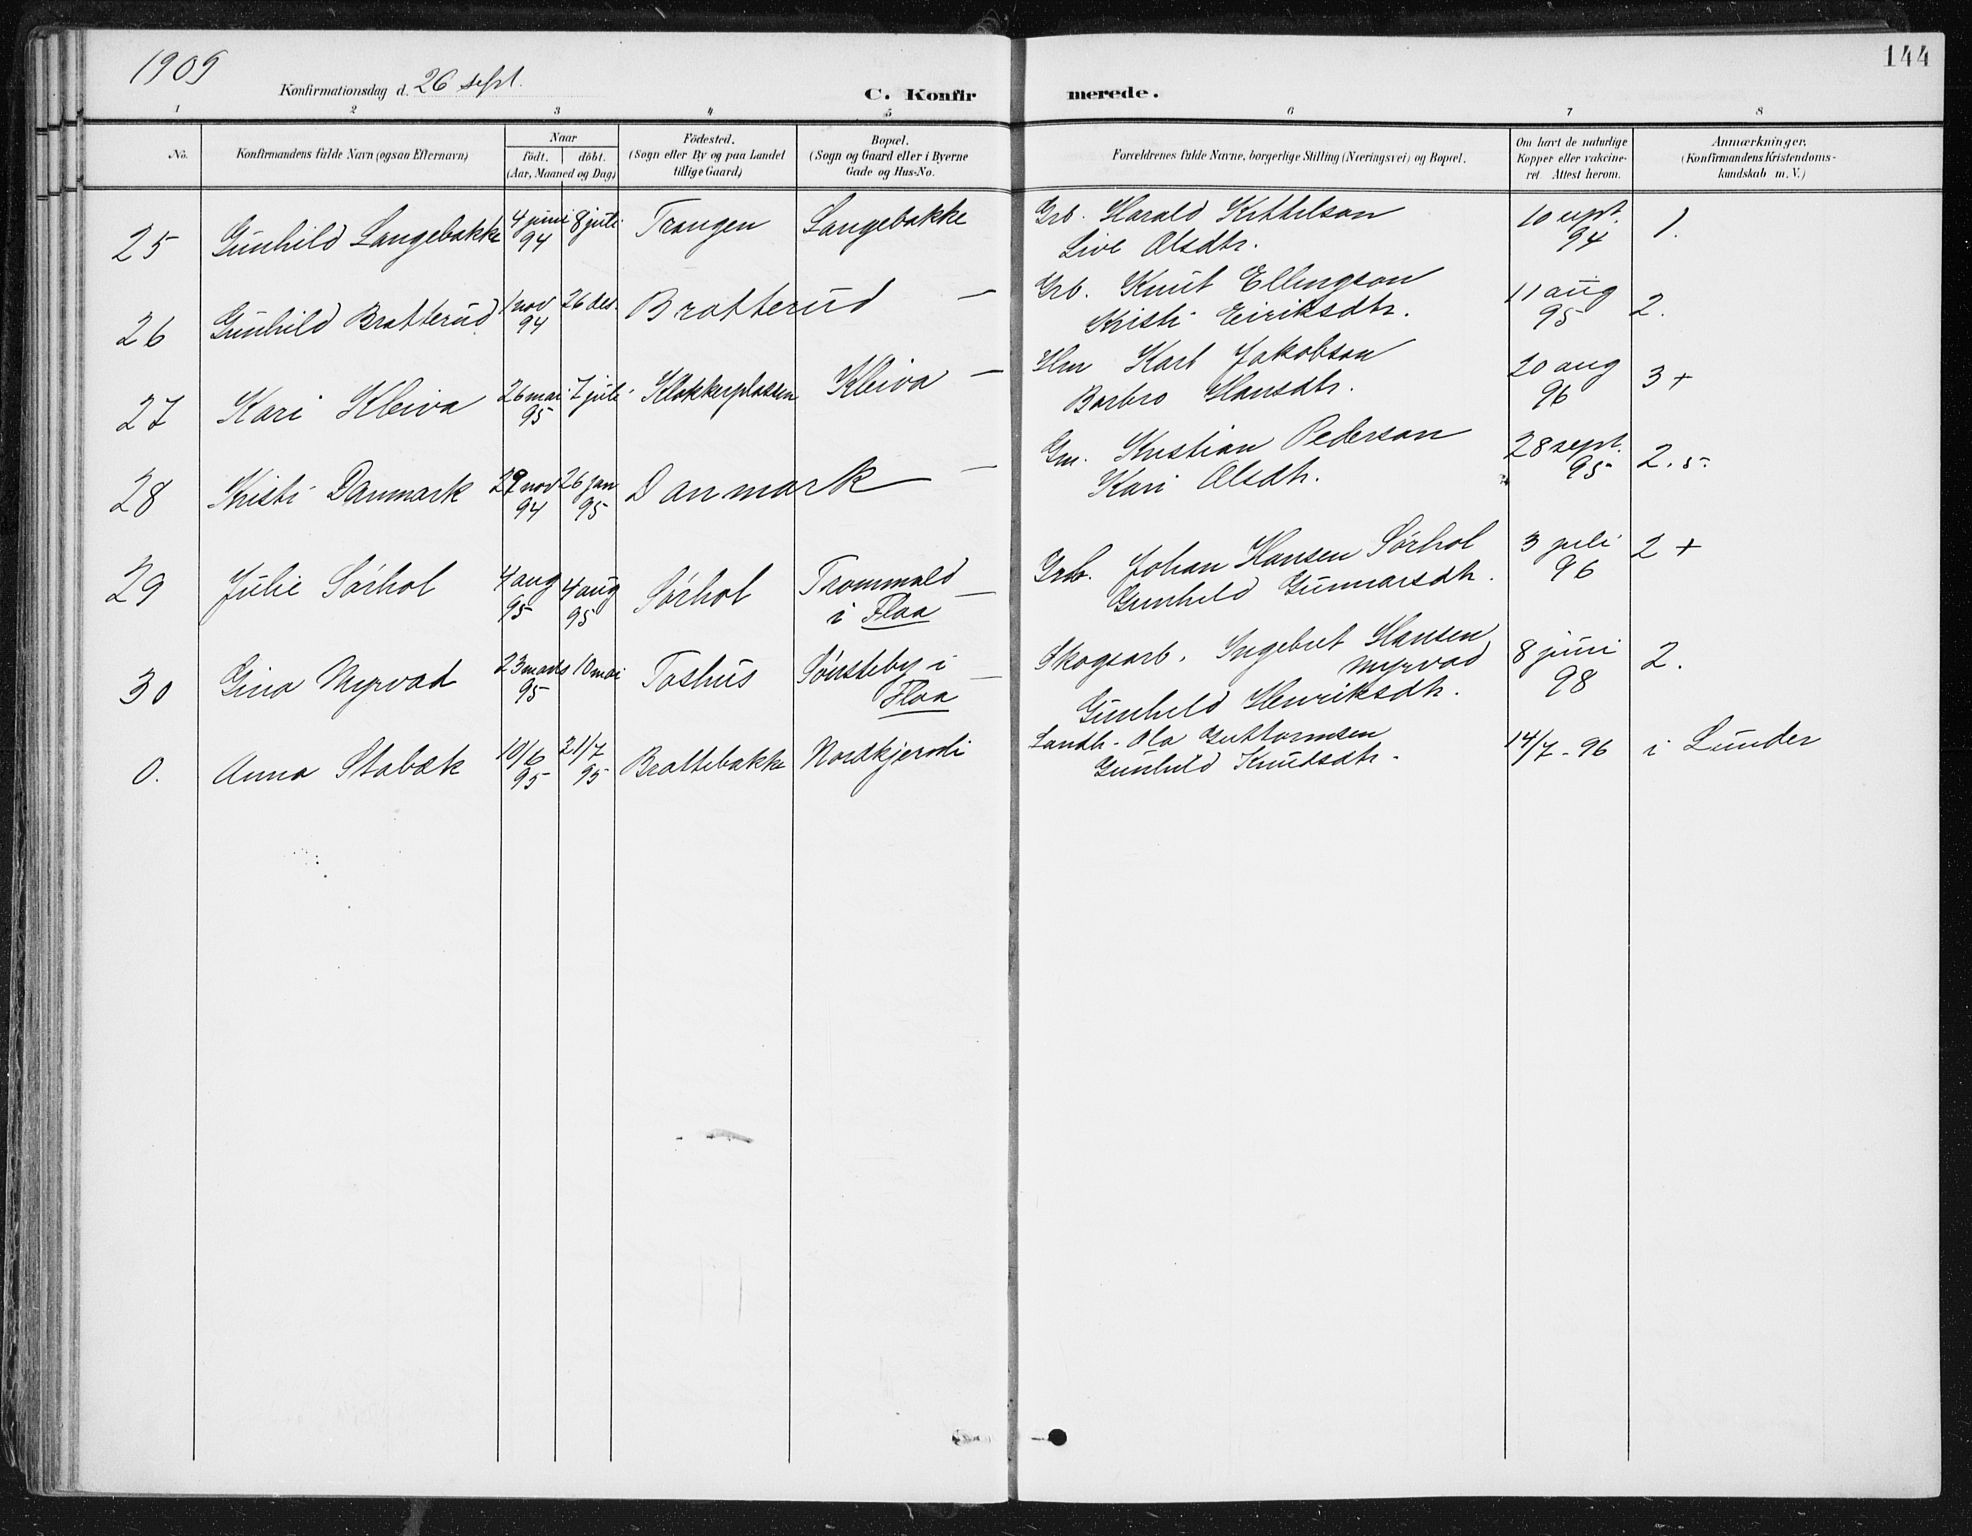 1909
144
Konfirmationsdag d. 26 sept.
C. Konfirmerede.
1 2 3 4 5 6 7 8
No.
Konfirmandens fulde Navn (ogsaa Efternavn)
Naar
födt. döbt.
(Aar, Maaned og Dag)
Födested.
(Sogn eller By og paa Landet
tillige Gaard)
Bopæl.
(Sogn og Gaard eller i Byerne
Gade og Hus-No.
Forældrenes fulde Navne, borgerlige Stilling (Næringsvei) og Bopæl.
Om havt de naturlige
Kopper eller vakcine-
ret Attest herom.
Anmærkninger.
(Konfirmandens Kristendoms-
kundskab m. V.)
25 Gunhild Langebakke 4 juni 94 8 juli Trangen Langebakke
Grb. Harald Kittilson
Live Olsdtr.
10 sept. 94
1.
26 Gunhild Bratterud 1 nov 94 26 des. Bratterud —
Grb. Knut Ellingson
Kristi Eiriksdtr.
11 aug 95
2.
27 Kari Kleiva 26 mai 95 7 juli Klokkerplassen Kleiva —
Hm Karl Jakobson
Barbro Hansdtr.
20 aug 96
3 +
28 Kristi Danmark 29 nov 94 26 jan 95 Danmark —
Gm. Kristian Pederson
Kari Olsdtr.
28 sept. 95
2.5
29 Julie Sørhol 4 aug 95 4 aug 95 Sørhol Trommald —
i Flaa
Grb. Johan Hansen Sørhol
Gunhild Gunnarsdtr.
3 juli 96
2 +
30 Gina Myrvad 23 mars 95 10 mai Toshus Sønsteby i —
Flaa
Skogsarb. Ingebret Hansen
Myrvad
Gunhild Henriksdtr.
8 juni 98
2.
0. Anna Stabæk 10/6 95 21/7 95 Brattebakke Nordkjernli
Landh. Ola Guttormsen
Gunhild Knudsdtr.
14/7-96
i Lunder